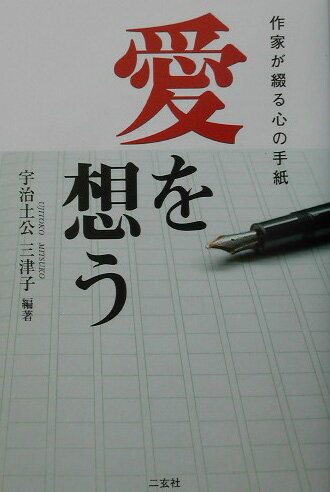 作家が綴る心の手紙
愛を
想う
宇治土公 三津子 編著
UJITOKO MITSUKO
二玄社